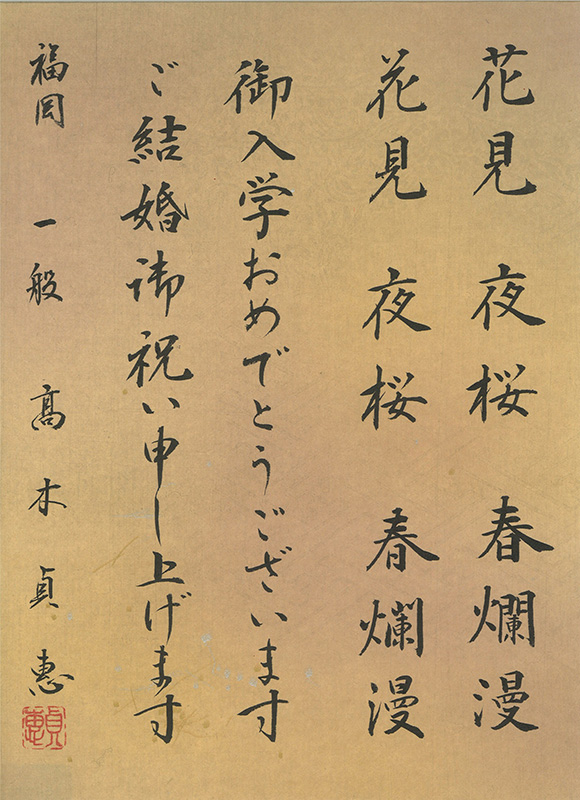 花見 夜桜 春爛漫
花見 夜桜 春爛漫
御入学おめでとうございます
ご結婚御祝い申し上げます
福岡 一般 髙木貞惠
貞惠